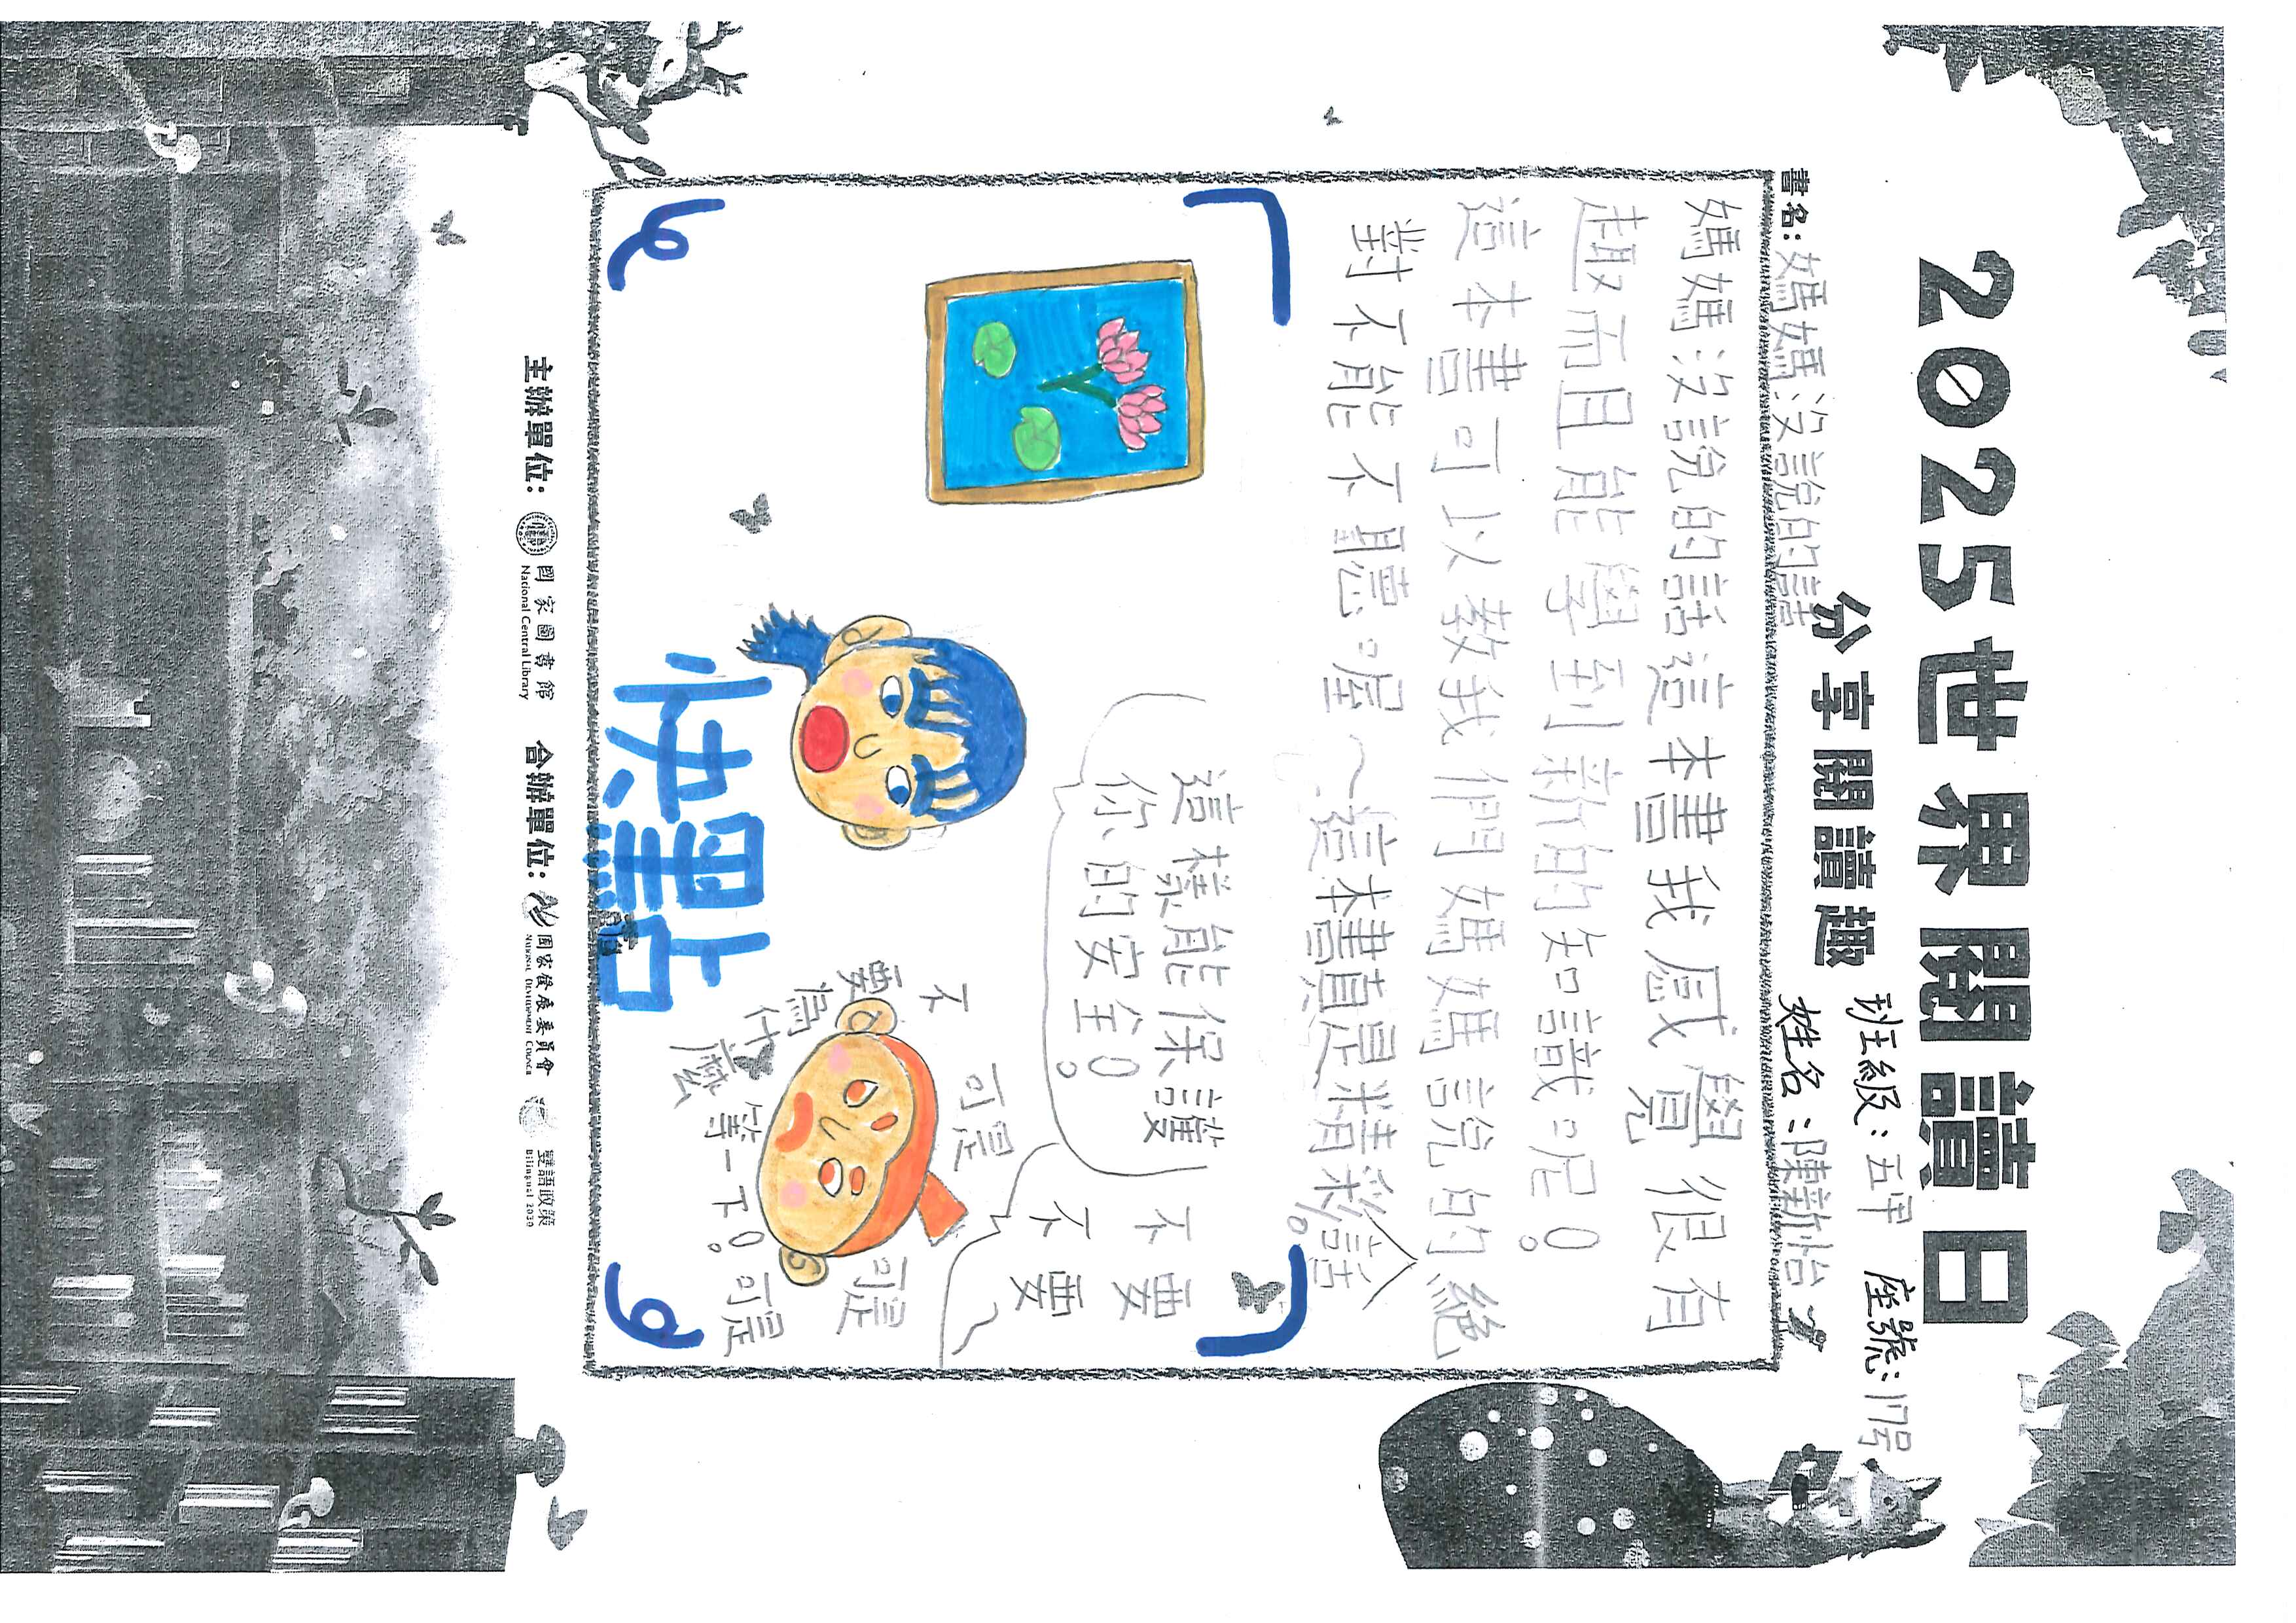 2025世界閱讀日
分享閱讀趣
班級:五年 座號:17号
書名:媽媽沒說的話
姓名:陳
媽媽沒說的話這本書我感覺很有
趣而且能學到新的知識呢。
這本書可以教我們媽媽說的絕
對不能不聽喔~這本書真是精彩。
話
這樣能保護
你的安全。
不要
不要
可是
不要
為什麼
等一下。
可是
可是
快點
主辦單位:
國家圖書館
National Central Library
合辦單位:
國家發展委員會
National Development Council
雙語政策
Bilingual 2030